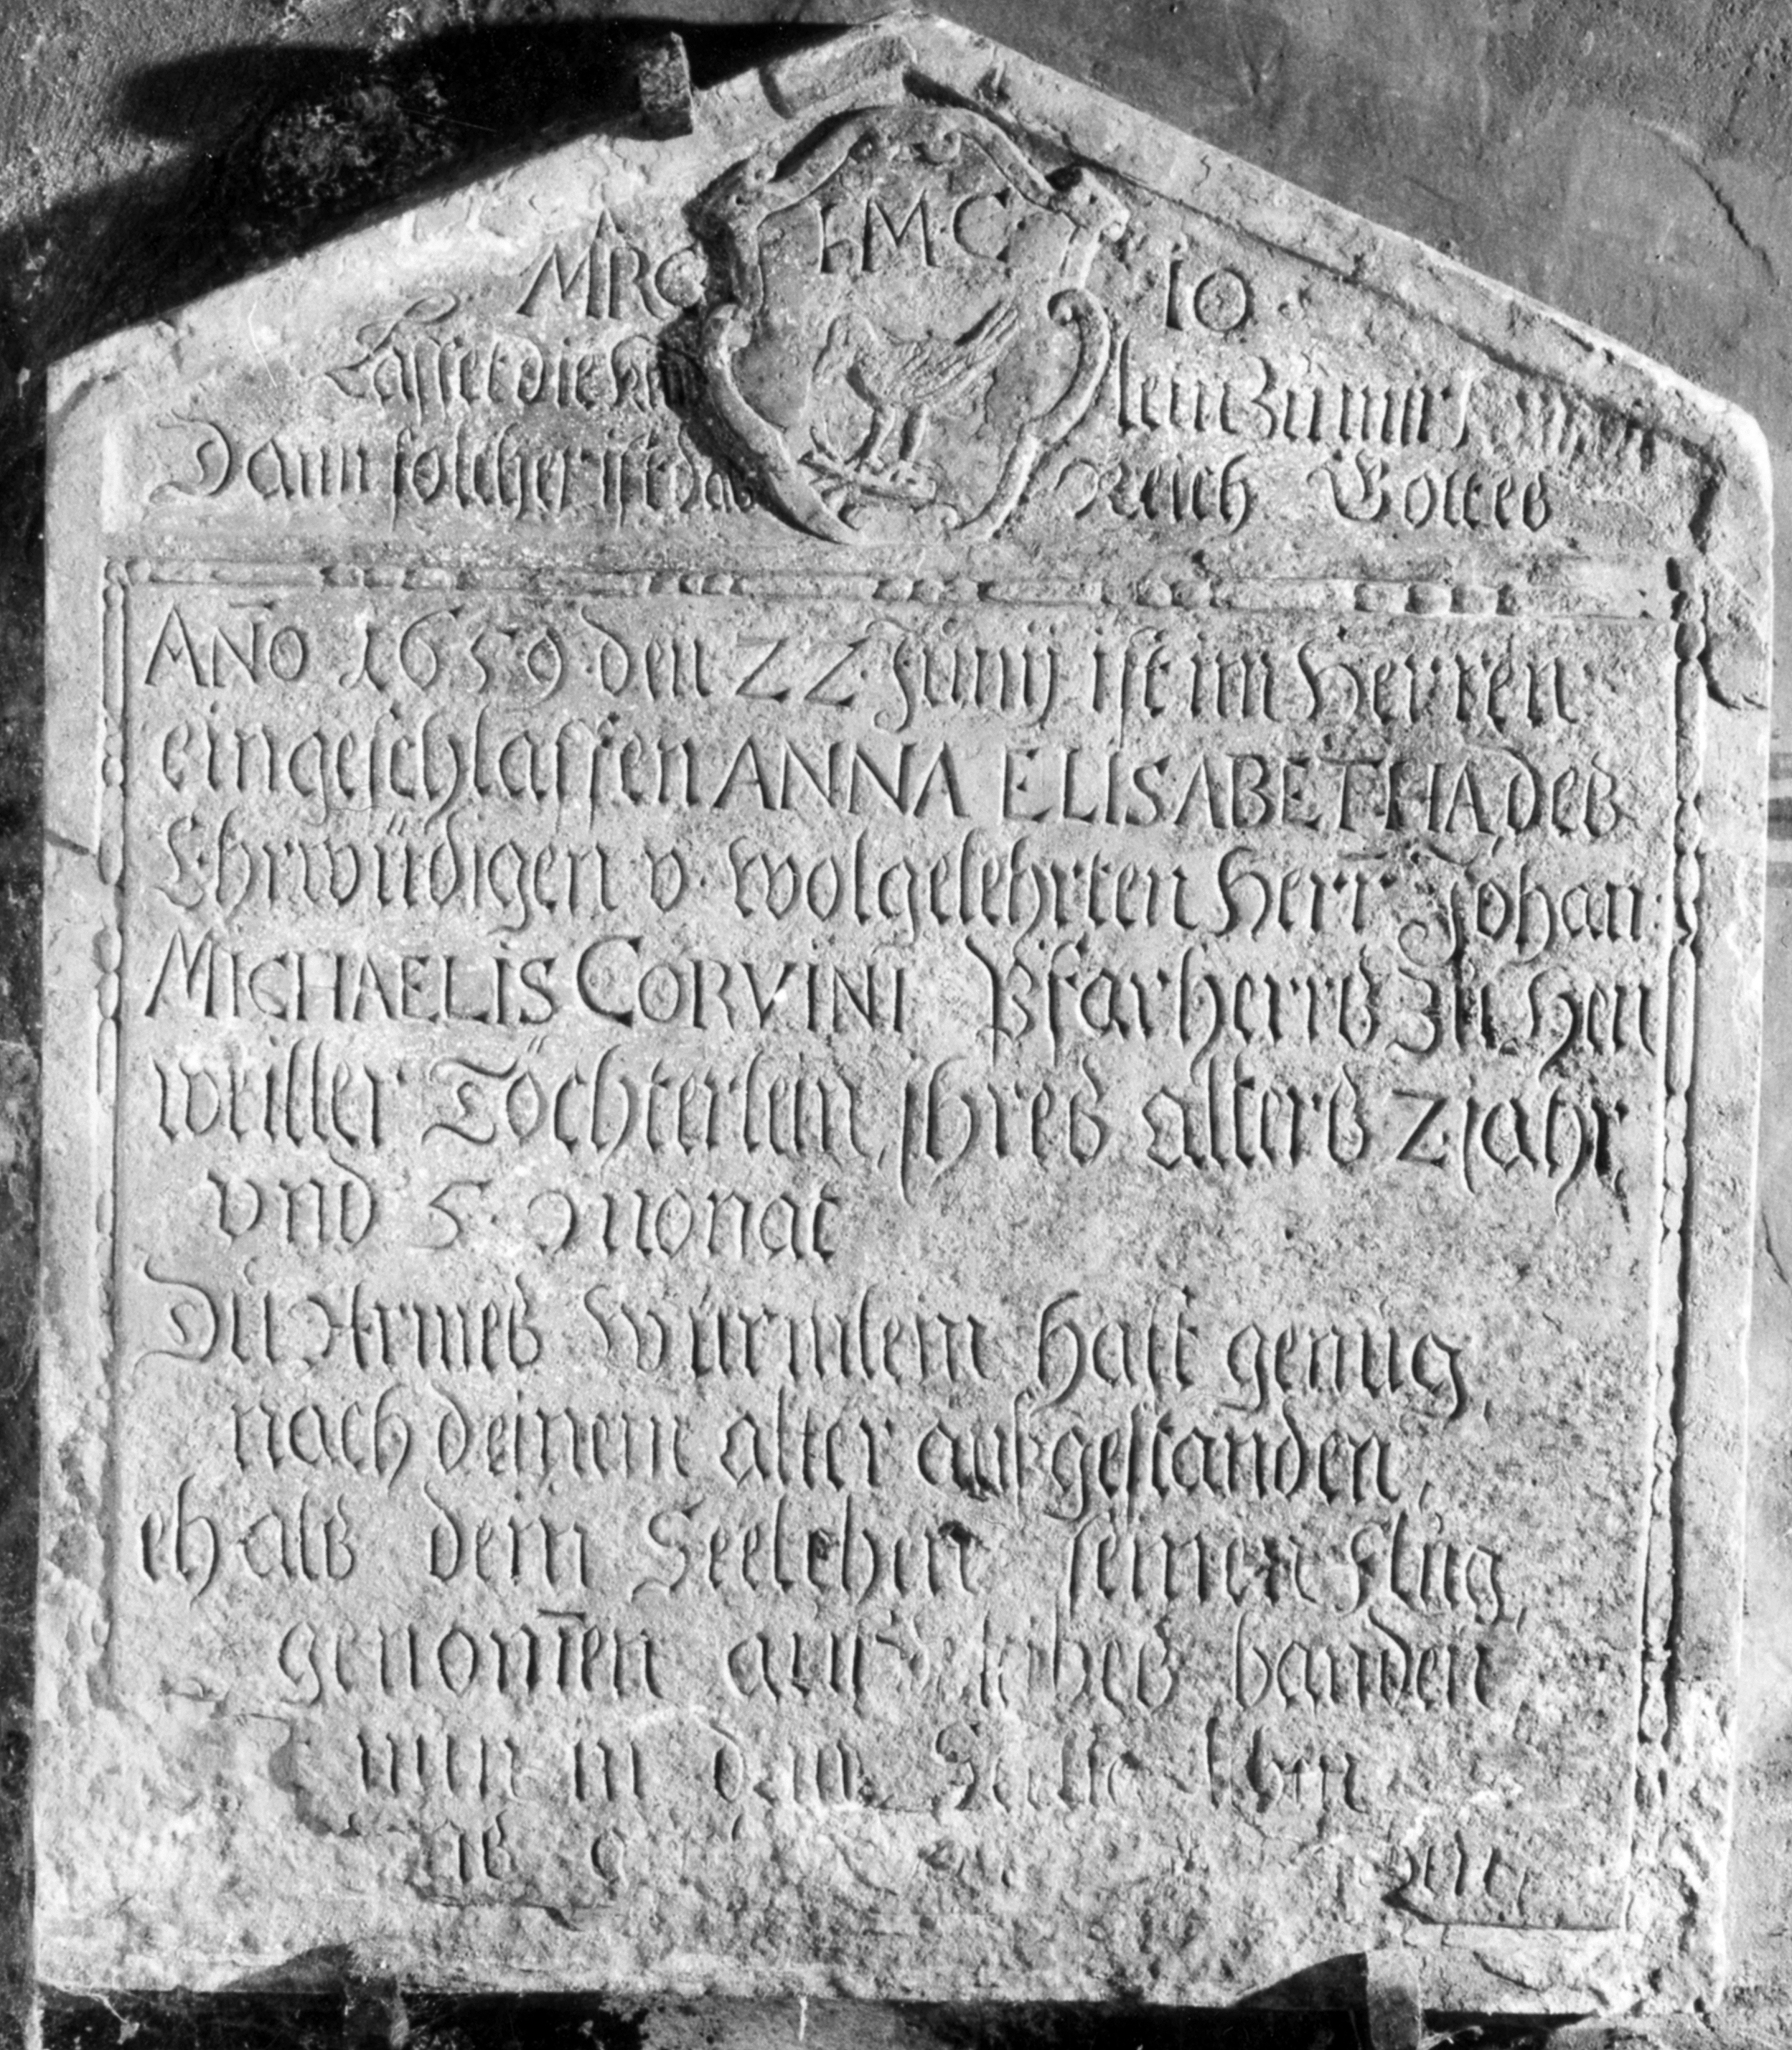 I·M·C·
MRC 10·
Lasset die Kind lein zu mir
Dann solcher ist das Reich Gottes
AÑO 1659 den 22 Junij ist im Herren
eingeschlaffen ANNA ELISABETHA, des
Ehrwürdigen v. wolgelehrten Herr Johan
MICHAELIS CORVINI Pfarherrs Zu Hen
weiller Töchterlein, ihres alters 2 jahr,
vnd 5 Monat
Du Armes Würmlein hast genug,
nach deinem alter außgestanden,
eh als dem Seelchen seinen Flug,
genom̄en auß des leibes banden
nun in dem